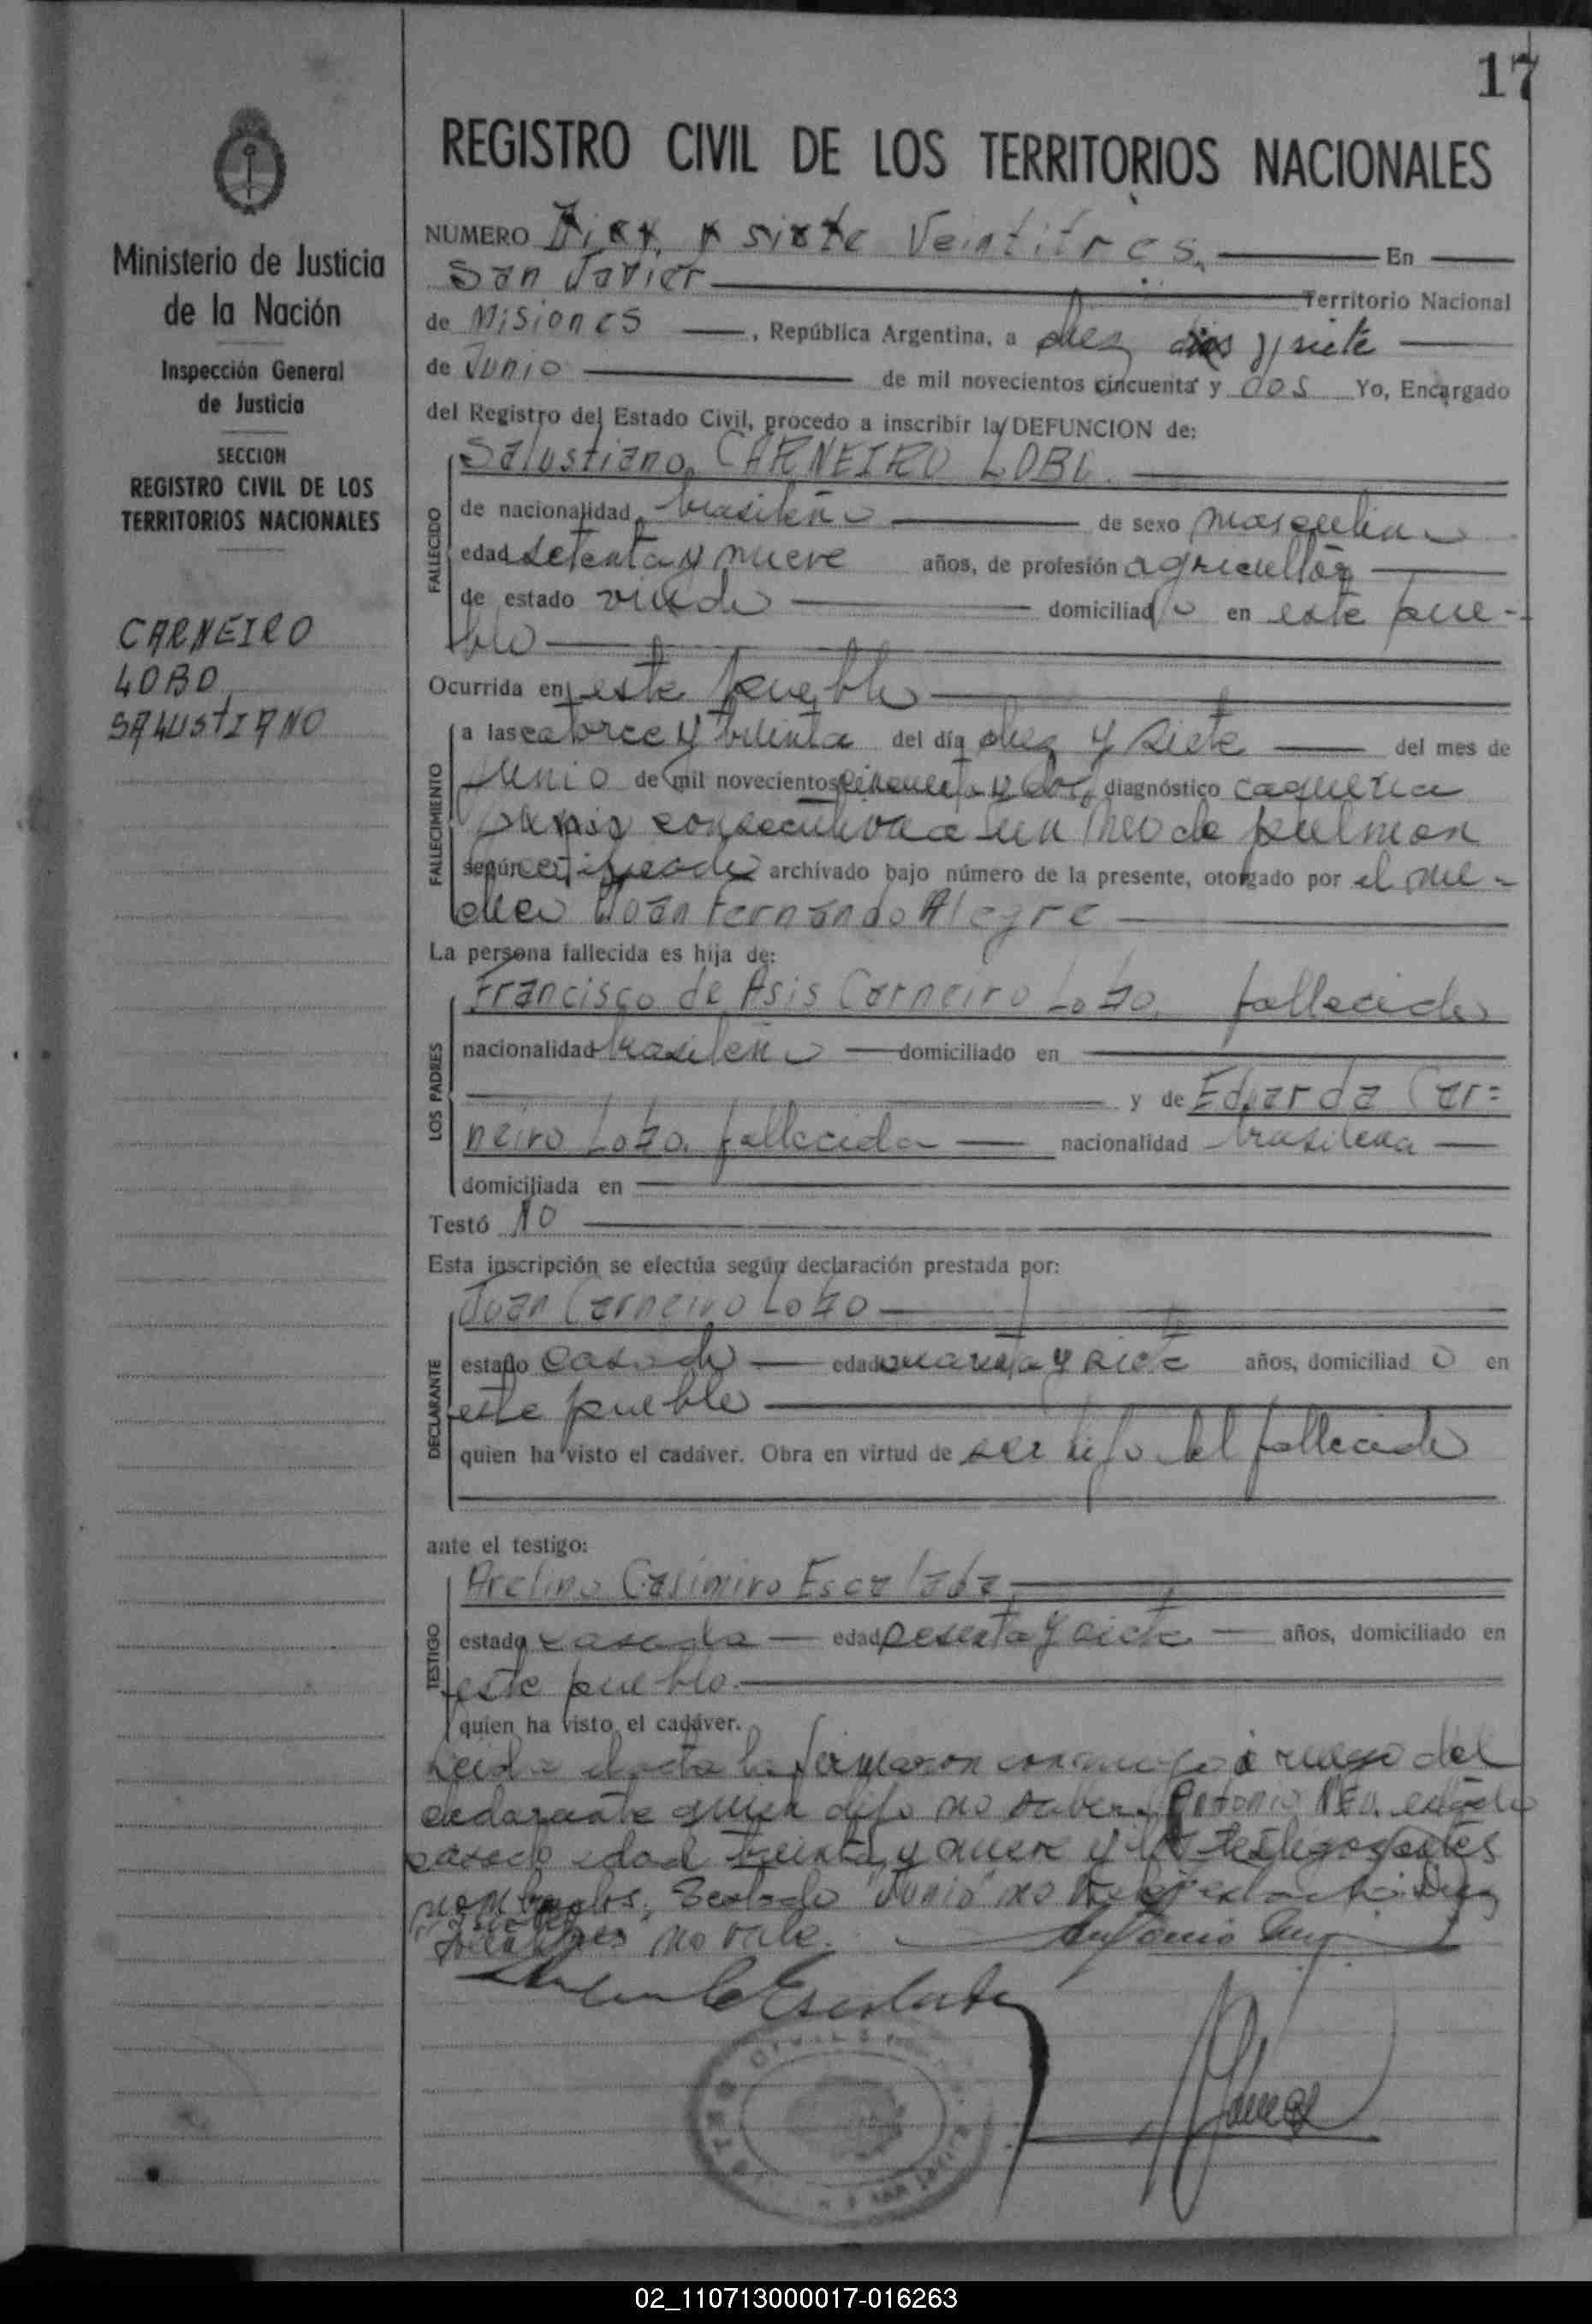 17
REGISTRO CIVIL DE LOS TERRITORIOS NACIONALES
Ministerio de Justicia
de la Nación
Inspección General
de Justicia
SECCION
REGISTRO CIVIL DE LOS
TERRITORIOS NACIONALES
CARNEIRO
LOBO
SALUSTIANO
NUMERO Diez y siete Veintitres. En
San Javier Territorio Nacional
de Misiones, República Argentina, a diez dias y siete
de Junio de mil novecientos cincuenta y dos Yo, Encargado
del Registro del Estado Civil, procedo a inscribir la DEFUNCION de:
Salustiano CARNEIRO LOBO.
FALLECIDO
de nacionalidad brasileño de sexo masculino
edad setenta y nueve años, de profesión agricultor
de estado viudo domiciliado en este pue-
blo
Ocurrida en este pueblo
FALLECIMIENTO
a las catorce y treinta del día diez y siete del mes de
Junio de mil novecientos cincuenta y dos, diagnóstico caquexia
consecutiva a un de pulmon
según certificado archivado bajo número de la presente, otorgado por el me-
dico Juan Fernando Alegre
La persona fallecida es hija de:
LOS PADRES
Francisco de Asis Carneiro Lobo. fallecido
nacionalidad brasileño domiciliado en
y de Eduarda Car=
neiro Lobo. fallecida nacionalidad brasilena
domiciliada en
Testó NO
Esta inscripción se efectúa según declaración prestada por:
DECLARANTE
Juan Carneiro Lobo
estado casado edad cuarenta y siete años, domiciliado en
este pueblo
quien ha visto el cadáver. Obra en virtud de ser hijo del fallecido
ante el testigo:
TESTIGO
Avelino Casimiro Escalada
estado casado edad sesenta y siete años, domiciliado en
este pueblo.
quien ha visto el cadáver.
Leida el acta la firmaron conmigo a ruego del
declarante quien dijo no saber Antonio estado
casado edad treinta y nueve y testigos antes
nombrados. Testado "Junio" no
no vale. Antonio
Escalada
02_110713000017-016263